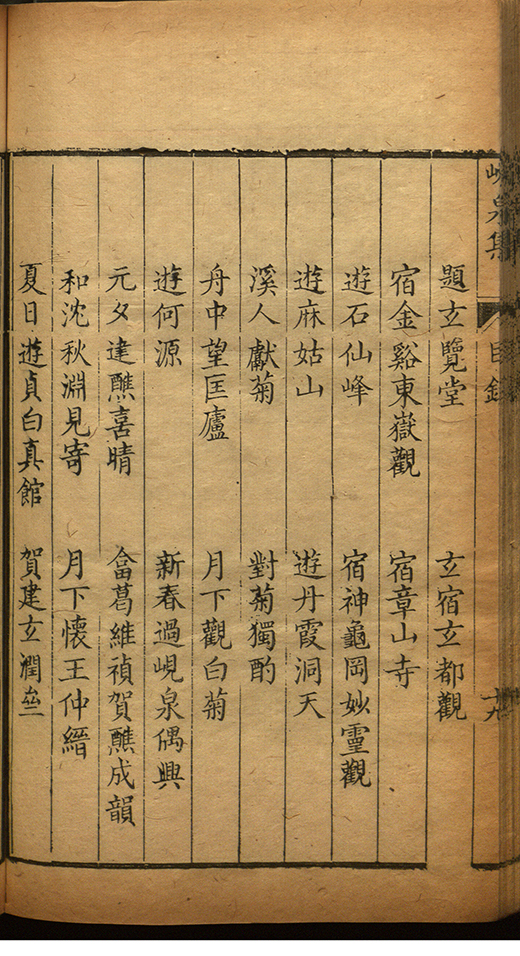 峴泉集 目錄 十六
題玄覽堂 玄宿玄都觀
宿金谿東嶽觀 宿章山寺
遊石仙峰 宿神龜岡妙靈觀
遊麻姑山 遊丹霞洞天
溪人獻菊 對菊獨酌
舟中望匡廬 月下觀白菊
遊何源 新春過峴泉偶興
元夕建醮喜晴 畣葛維禎賀醮成韻
和沈秋淵見寄 月下懷王仲縉
夏日遊貞白真館 賀建玄潤